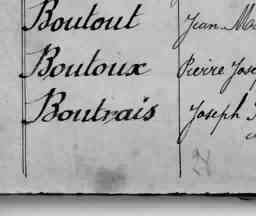 Boutout Jean
Boutoux Pierre
Boutrais Joseph